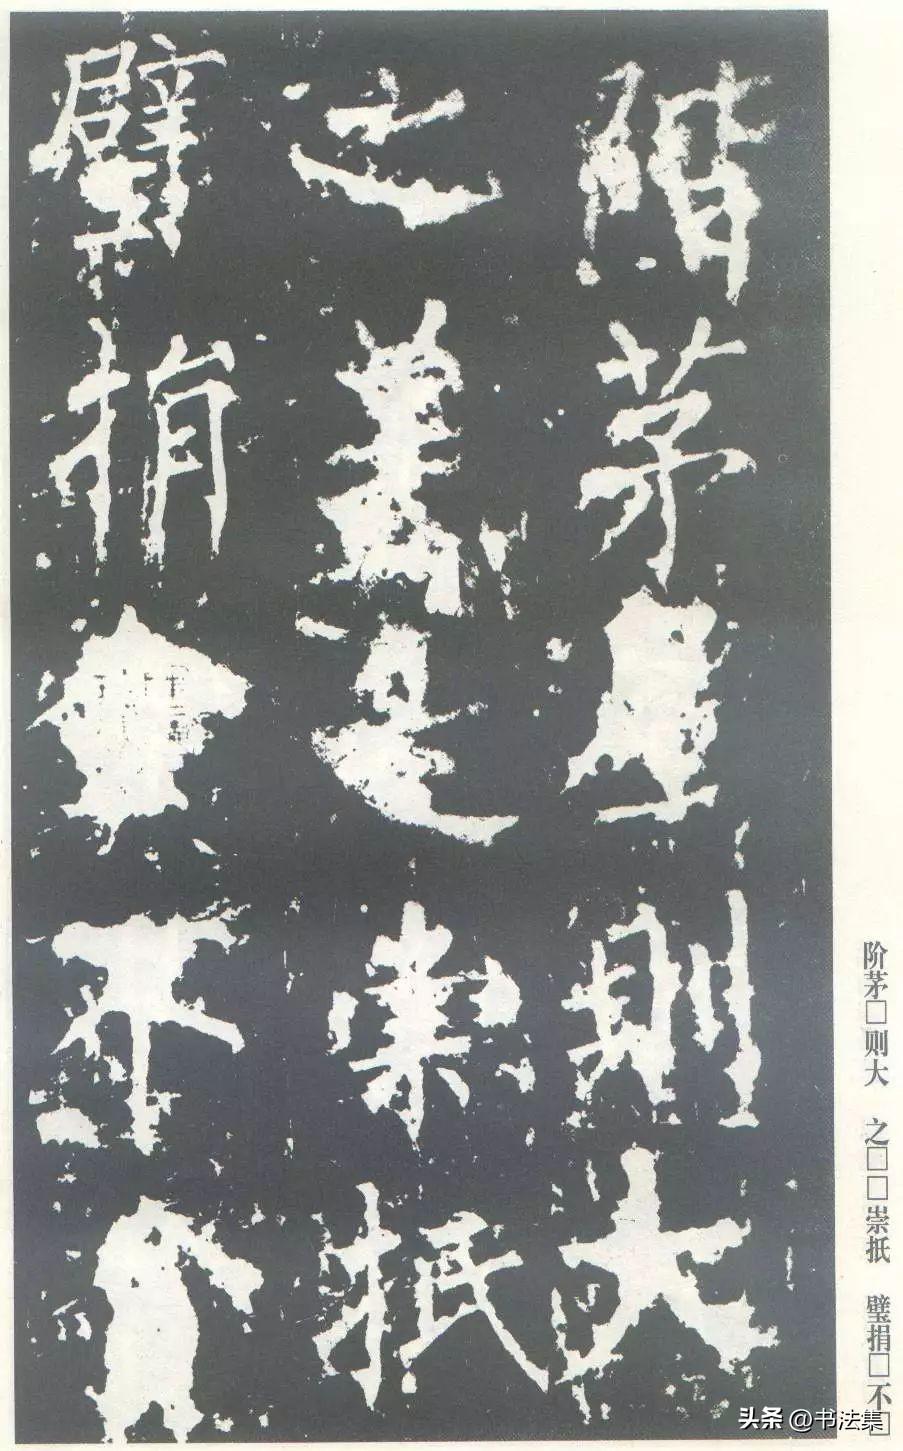 階茅則大
之崇抵
璧捐不
阶茅□则大　之□□崇抵　璧捐□不□
头条 @书法集